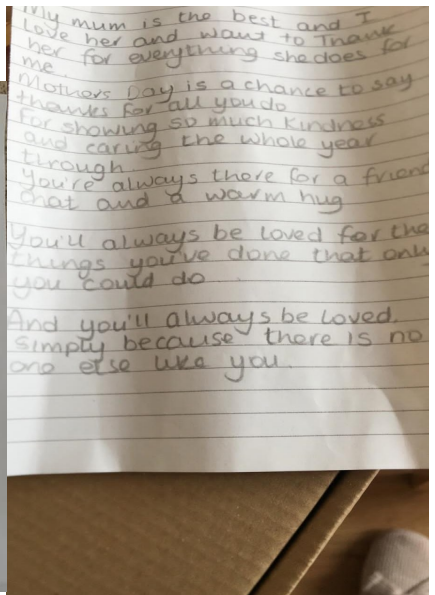 My mum is the best and I
Love her and want to Thank
her for everything she does for
me.
Mothers Day is a chance to say
thanks for all you do
For showing so much kindness
and caring the whole year
through
You're always there for a friend
chat and a warm hug
You'll always be loved for the
things you've done that only
you could do
And you'll always be loved.
Simply because there is no
one else like you.